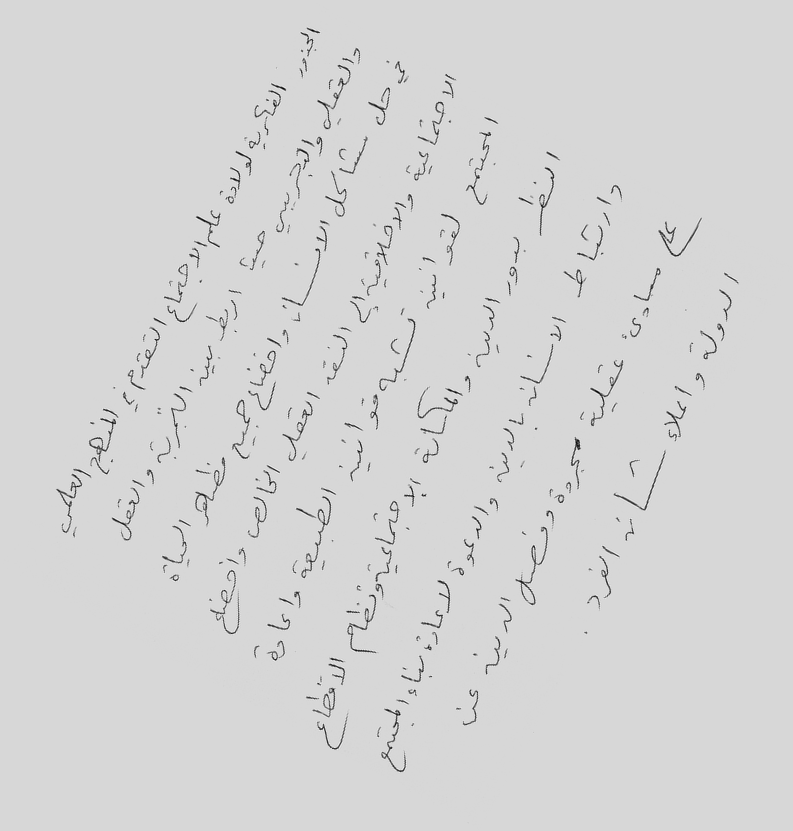 الجذور الفكرية لولادة علم الاجتماع التقدم في المنهج العلمي
والعقلي والتجريبي حيث اربط بين التجربة والعقل
في حل مشاكل الانسان واخضاع جميع مظاهر الحياة
الاجتماعية والاخلاقية الى النقد العقلي الخالص واخضاع
المجتمع لقوانين تشبه قوانين الطبيعة واعادة
النظر بدور الدين والمكانة الاجتماعية ونظام الاقطاع
وارتباط الانسان بالدين والدعوة لاعادة بناء المجتمع
على مبادئ عقلية مجردة وفصل الدين عن
الدولة واعلاء شان الفرد .